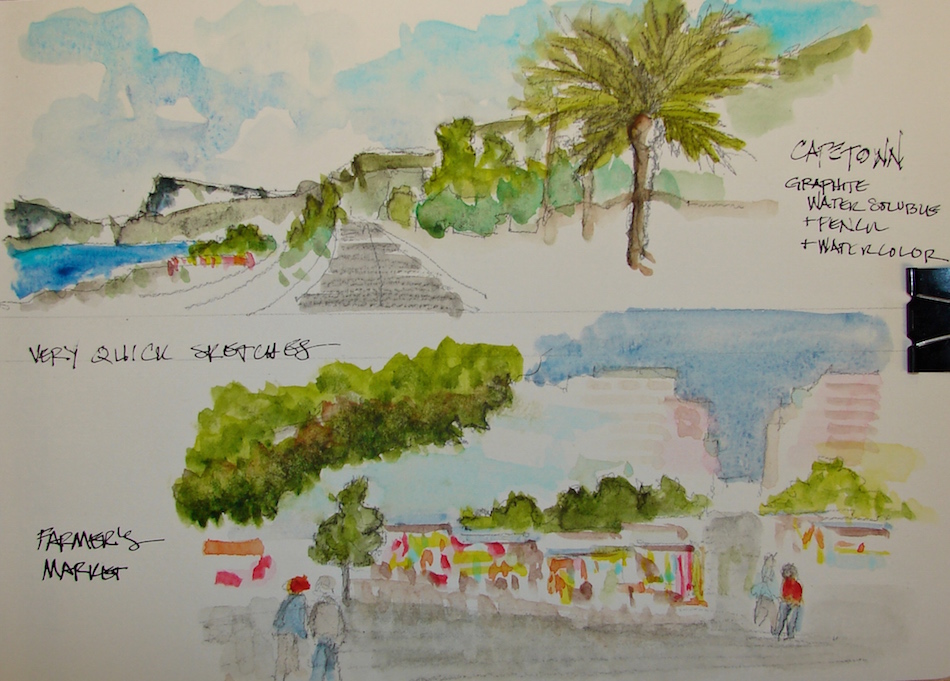 CAPETOWN
GRAPHITE
WATER SOLUBLE
+ PENCIL
+ WATERCOLOR
VERY QUICK SKETCHES
FARMER'S
MARKET